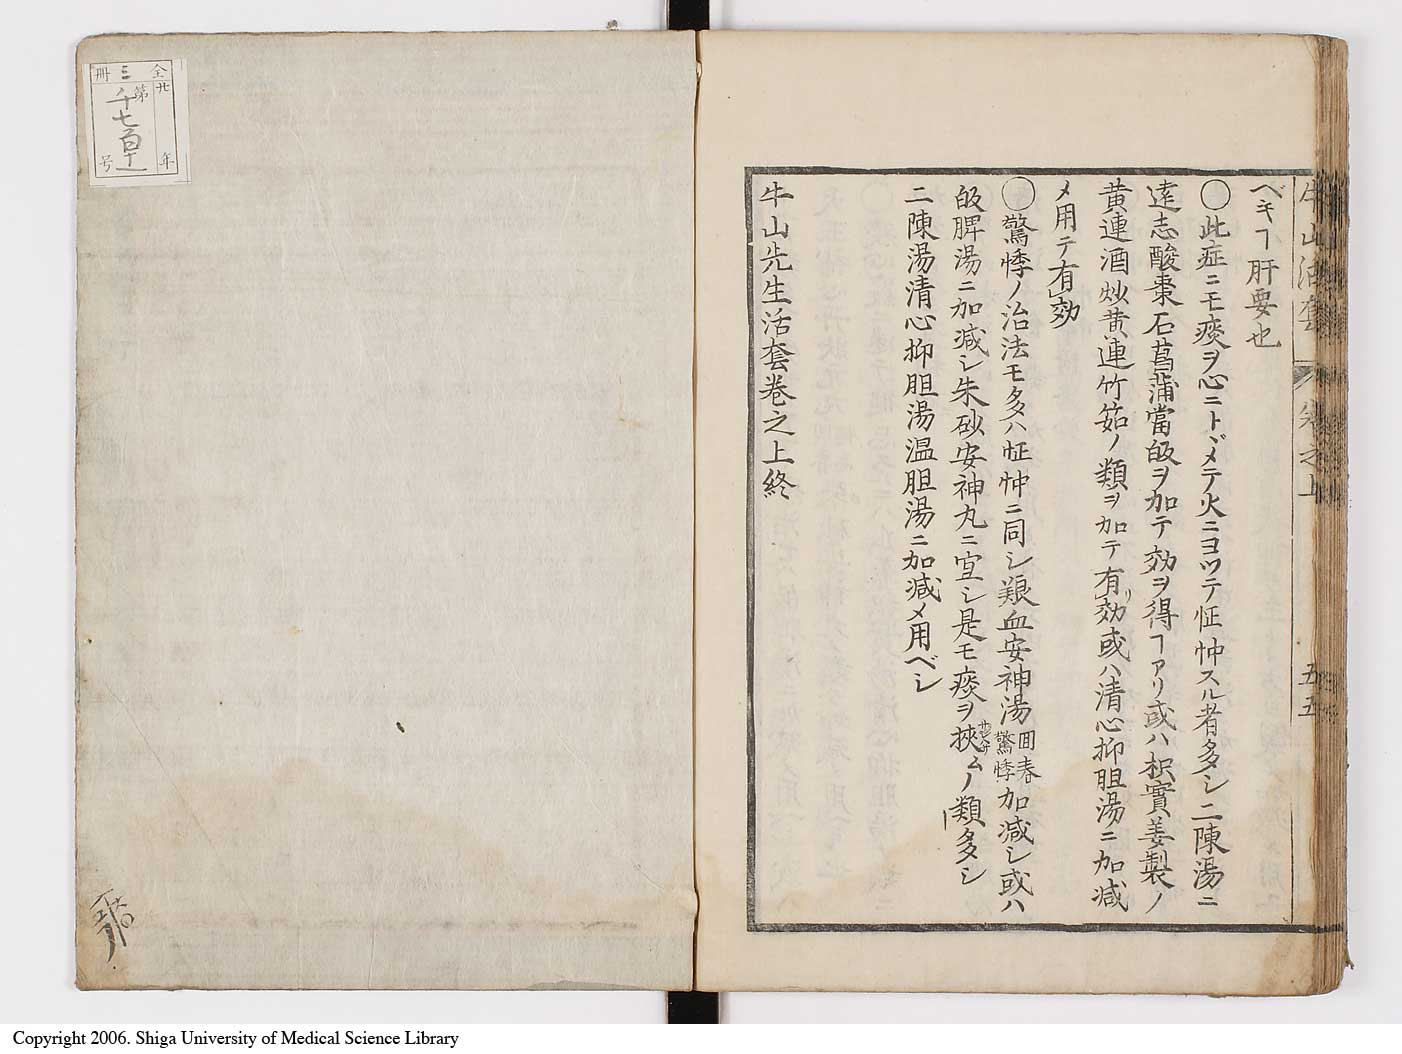 牛山活套 卷之上 五五
ベキヿ肝要也
〇此症ニモ痰ヲ心ニトヾメテ火ニヨツテ怔忡スル者多シ二陳湯ニ
遠志酸棗石菖蒲當皈ヲ加テ効ヲ得ヿアリ或ハ枳實姜製ノ
黄連酒炒黄連竹筎ノ類ヲ加テ有リ効或ハ清心抑胆湯ニ加減
メ用テ有効
〇驚悸ノ治法モ多ハ怔忡ニ同シ養血安神湯回春驚悸加減シ或ハ
皈脾湯ニ加減シ朱砂安神丸ニ宜シ是モ痰ヲ挾ムノ類多シ
二陳湯清心抑胆湯温胆湯ニ加減メ用ベシ
牛山先生活套卷之上終
全三冊
廿年
第千七百十一号
Copyright 2006. Shiga University of Medical Science Library